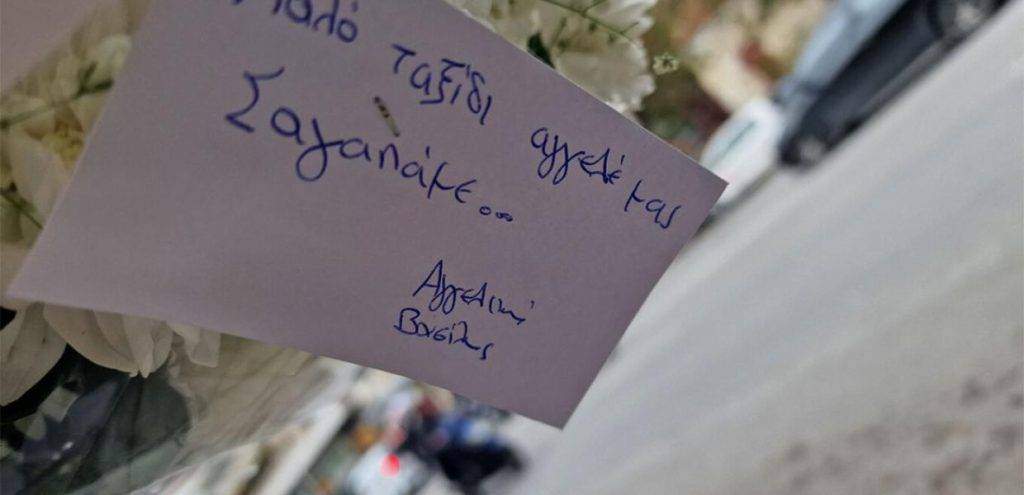 Καλό ταξίδι αγγελέ μας
Σαγαπάμε...
Αγγελική
Βασίλης